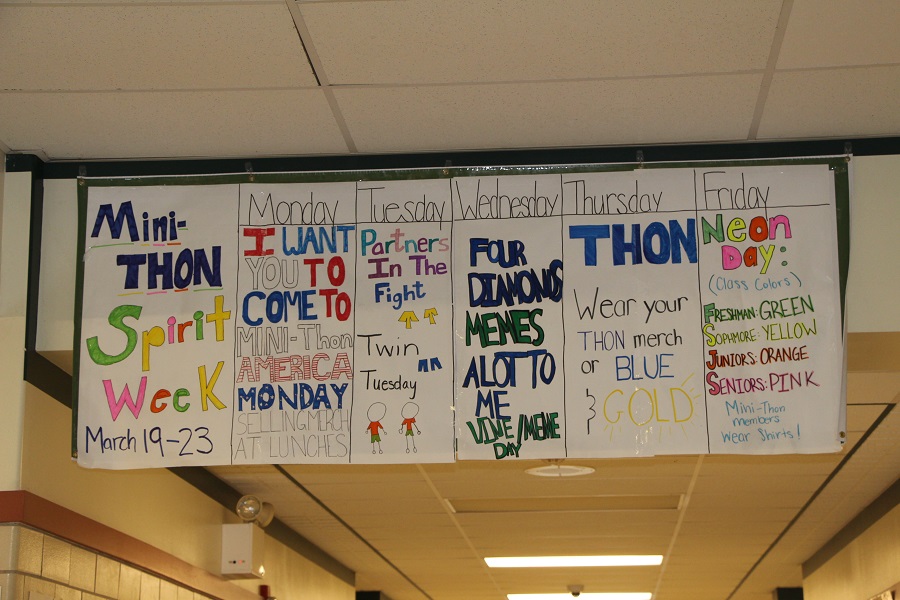 Mini-
THON
Spirit
Week
March 19-23
Monday
I WANT
YOU TO
COME TO
MINI-Thon
AMERICA
MONDAY
SELLING MERCH
AT LUNCHES
Tuesday
Partners
In The
Fight
Twin
Tuesday
Wednesday
FOUR
DIAMONDS
MEMES
ALOT TO
ME
VINE/MEME
DAY
Thursday
THON
Wear your
THON merch
or BLUE
& GOLD
Friday
Neon
Day:
(Class Colors)
FRESHMAN: GREEN
SOPHMORE: YELLOW
JUNIORS: ORANGE
SENIORS: PINK
Mini-Thon
members
Wear Shirts!